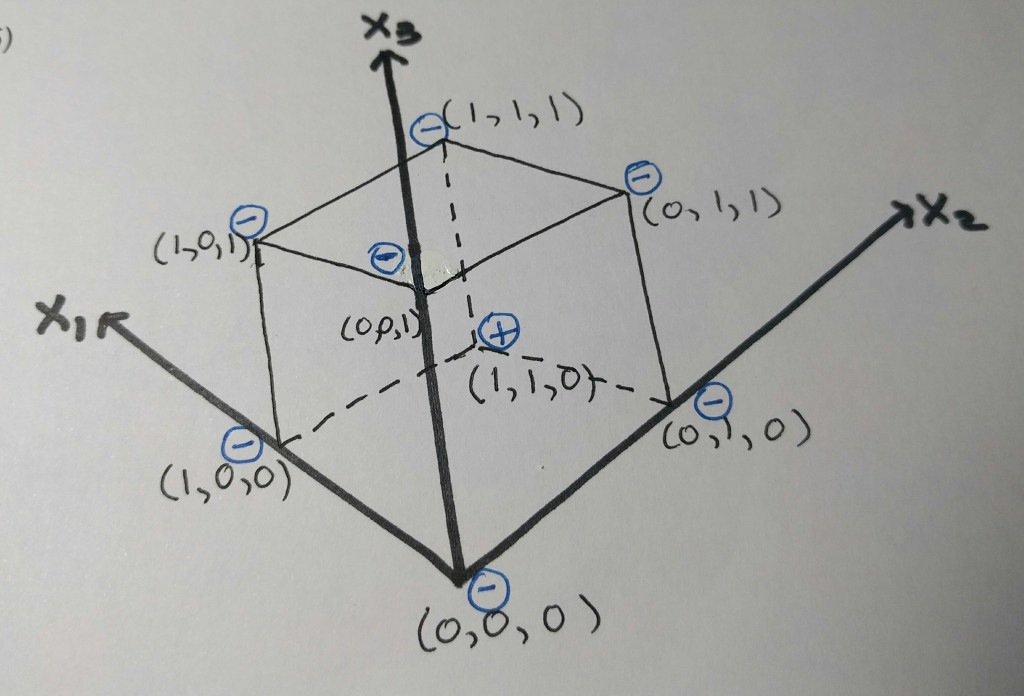 5)
X3
⊖(1,1,1)
⊖
(0,1,1)
X2
⊖
(1,0,1)
⊖
(0,0,1)
X1
⊕
(1,1,0)
⊖
(0,1,0)
⊖
(1,0,0)
⊖
(0,0,0)